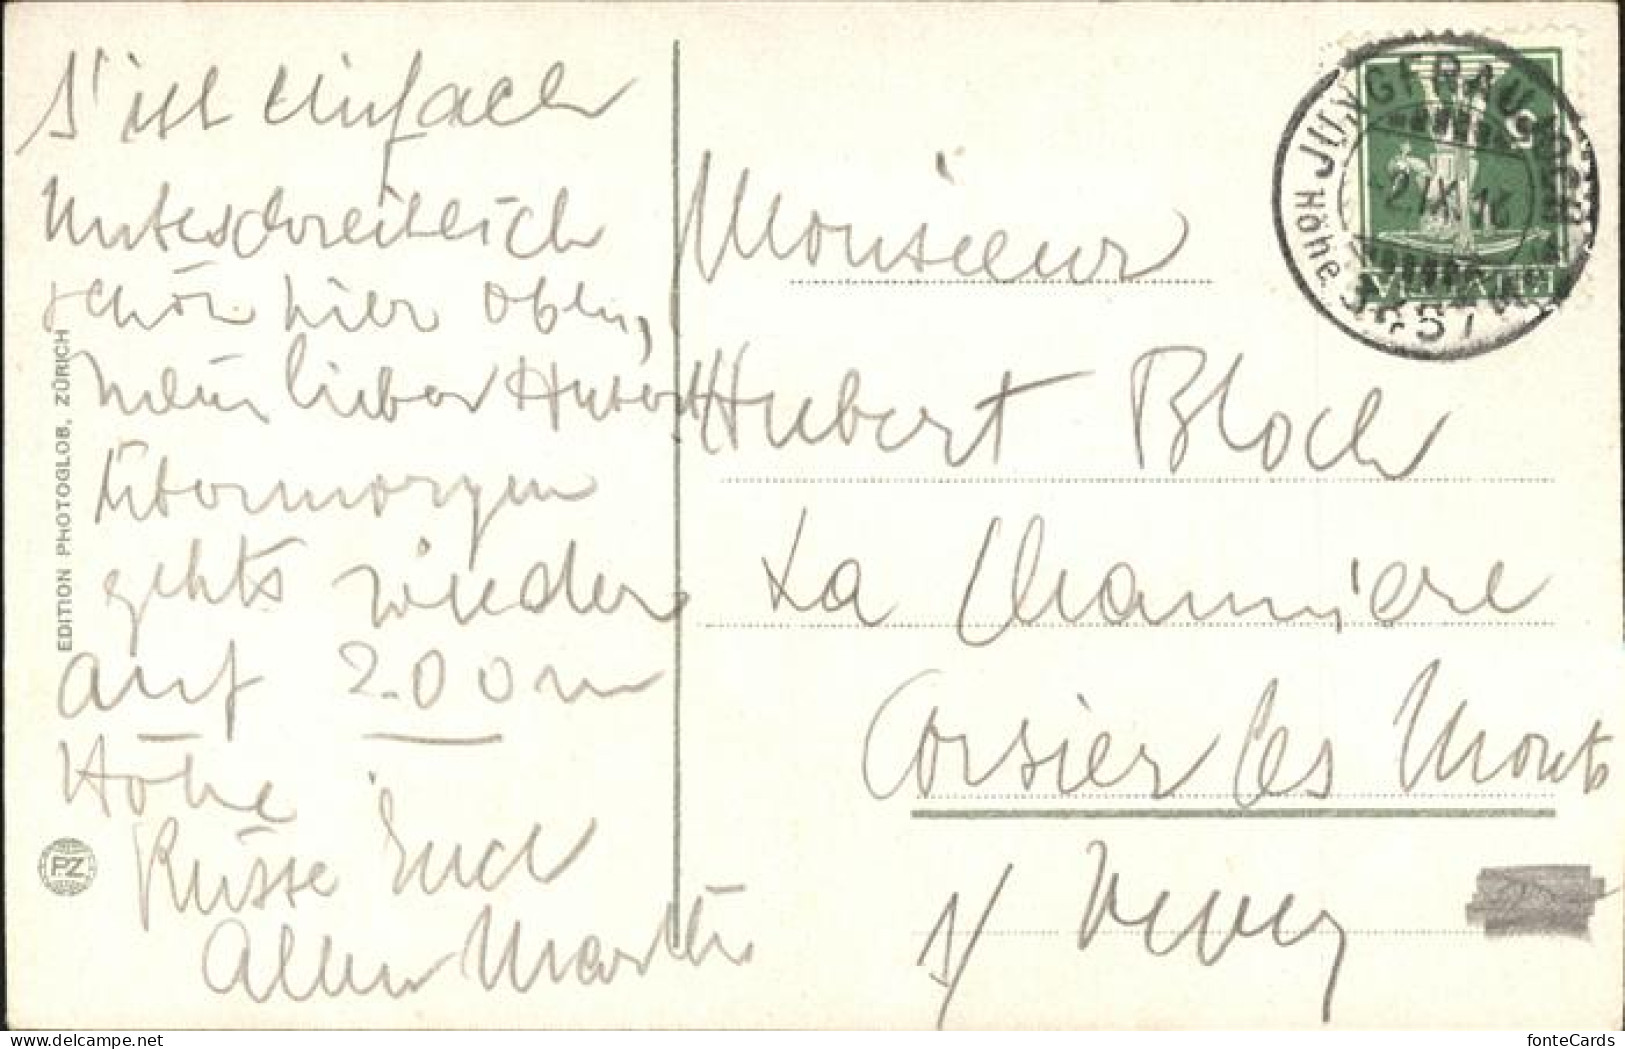 S'ist einfach
unbeschreiblich
schön hier oben,
mein lieber Hubert
Übermorgen
gehts wieder
auf 200 m
Höhe
Küsse Euch
Allen Martha
EDITION PHOTOGLOB, ZÜRICH
PZ
Monsieur
Hubert Bloch
La Chaumière
Corsier les Monts
s/ Vevey
JUNGFRAUJOCH
2.IX.16
Höhe 3457 m
5
HELVETIA
fonteCards
delcampe.net